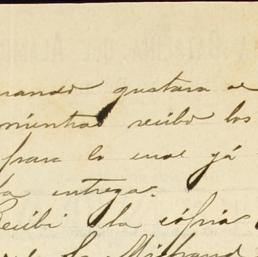 mando gustara de
mientras recibo los
para lo cual yá
la entrega.
Recibi la cópia